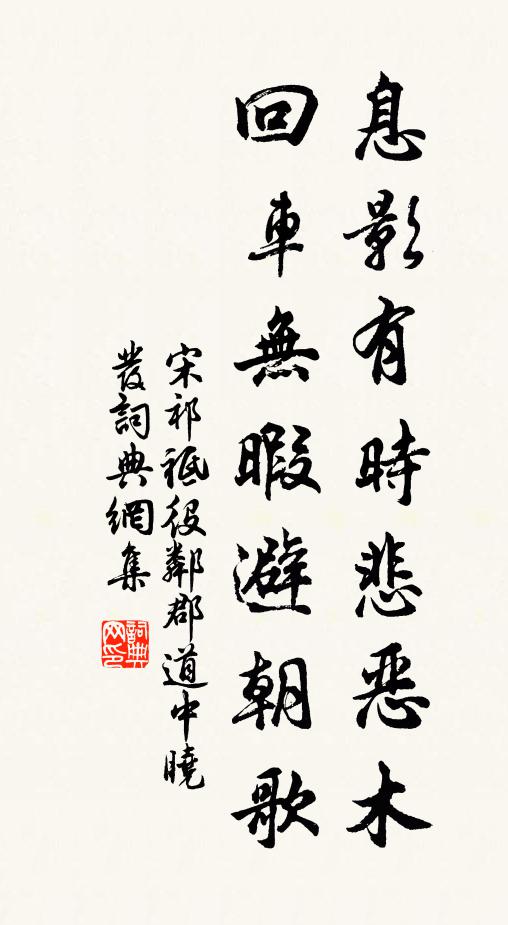 息影有時悲惡木
回車無暇避朝歌
宋祁祗役鄰郡道中曉
發詞典網集
詞典
网印